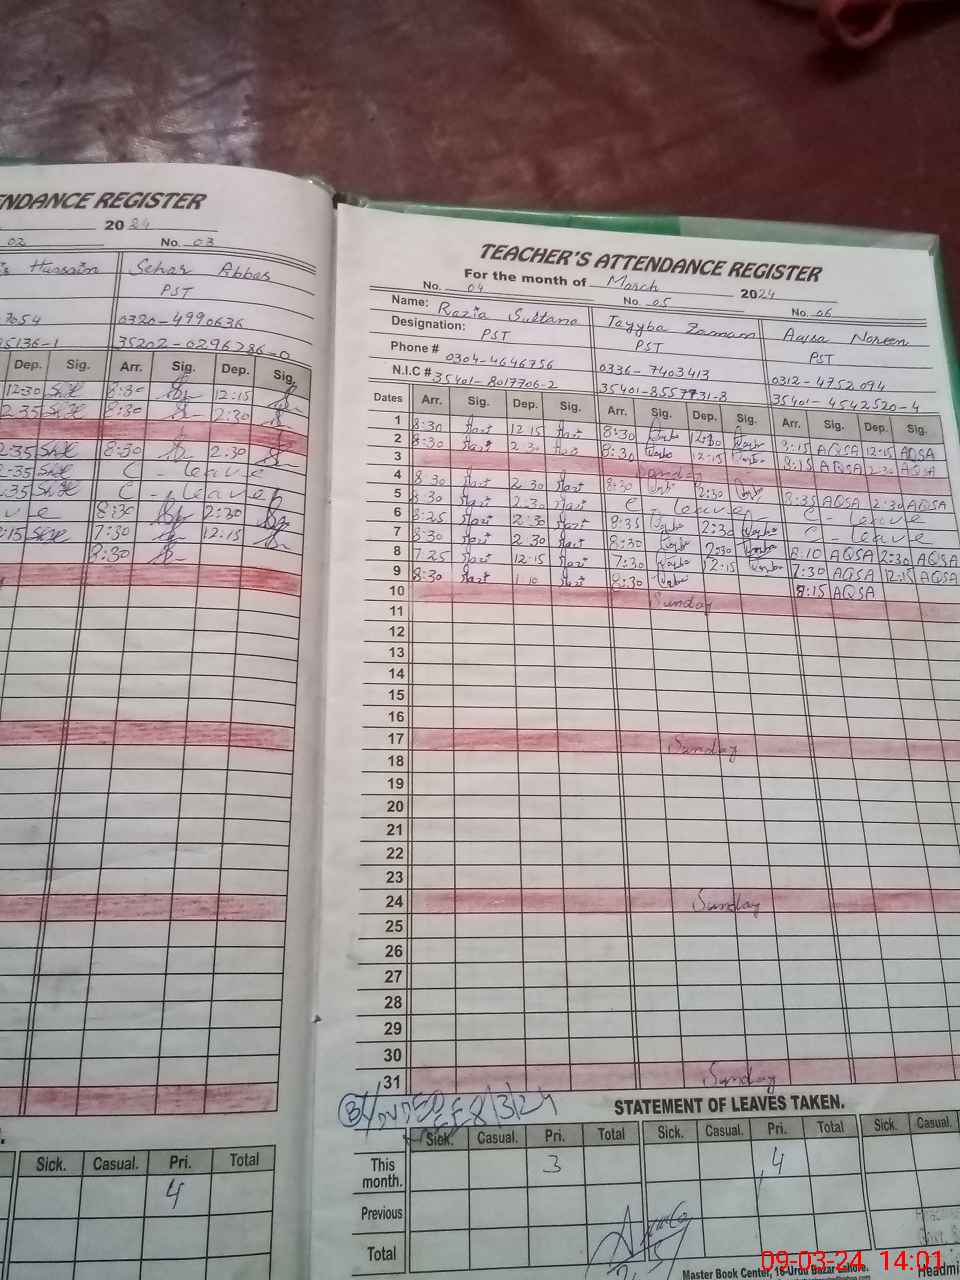 ENDANCE REGISTER
2024
02 No. 03
Hussain Sehar Abbas
PST
7054 0320-4990636
35136-1 35202-0296786-0
Dep. Sig. Arr. Sig. Dep. Sig.
12:30 8:30 12:15
2:35 8:30 2:30
2:35 8:30 2:30
2:35 C-leave
2:35 C-leave
8:30 2:30
7:30 12:15
8:30
Sick. Casual. Pri. Total
4
TEACHER'S ATTENDANCE REGISTER
For the month of March 2024
No. 04 No. 05 No. 06
Name: Razia Sultana Tayyba Zamam Aqsa Noreen
Designation: PST PST PST
Phone # 0304-4646756 0336-7403413 0312-4752094
N.I.C # 35401-8017706-2 35401-8557731-8 35401-4542520-4
Dates Arr. Sig. Dep. Sig. Arr. Sig. Dep. Sig. Arr. Sig. Dep. Sig.
1 8:30 12:15 8:30 12:30 8:15 AQSA 12:15 AQSA
2 8:30 2:30 8:30 12:15 8:15 AQSA 2:30 AQSA
3 Sunday
4 8:30 2:30 8:30 2:30 8:35 AQSA 2:30 AQSA
5 8:30 2:30 C leave C-leave
6 8:25 2:30 8:35 2:30 C-leave
7 8:30 2:30 8:30 2:30 8:10 AQSA 2:30 AQSA
8 7:25 12:15 7:30 12:15 7:30 AQSA 12:15 AQSA
9 8:30 1:10 8:30 8:15 AQSA
10 Sunday
11
12
13
14
15
16
17 Sunday
18
19
20
21
22
23
24 Sunday
25
26
27
28
29
30
31 Sunday
8/3/24
STATEMENT OF LEAVES TAKEN.
Sick. Casual. Pri. Total Sick. Casual. Pri. Total Sick. Casual.
This month. 3 4
Previous
Total
Master Book Center, 16-Urdu Bazar Lahore.
Headmi
09-03-24 14:01